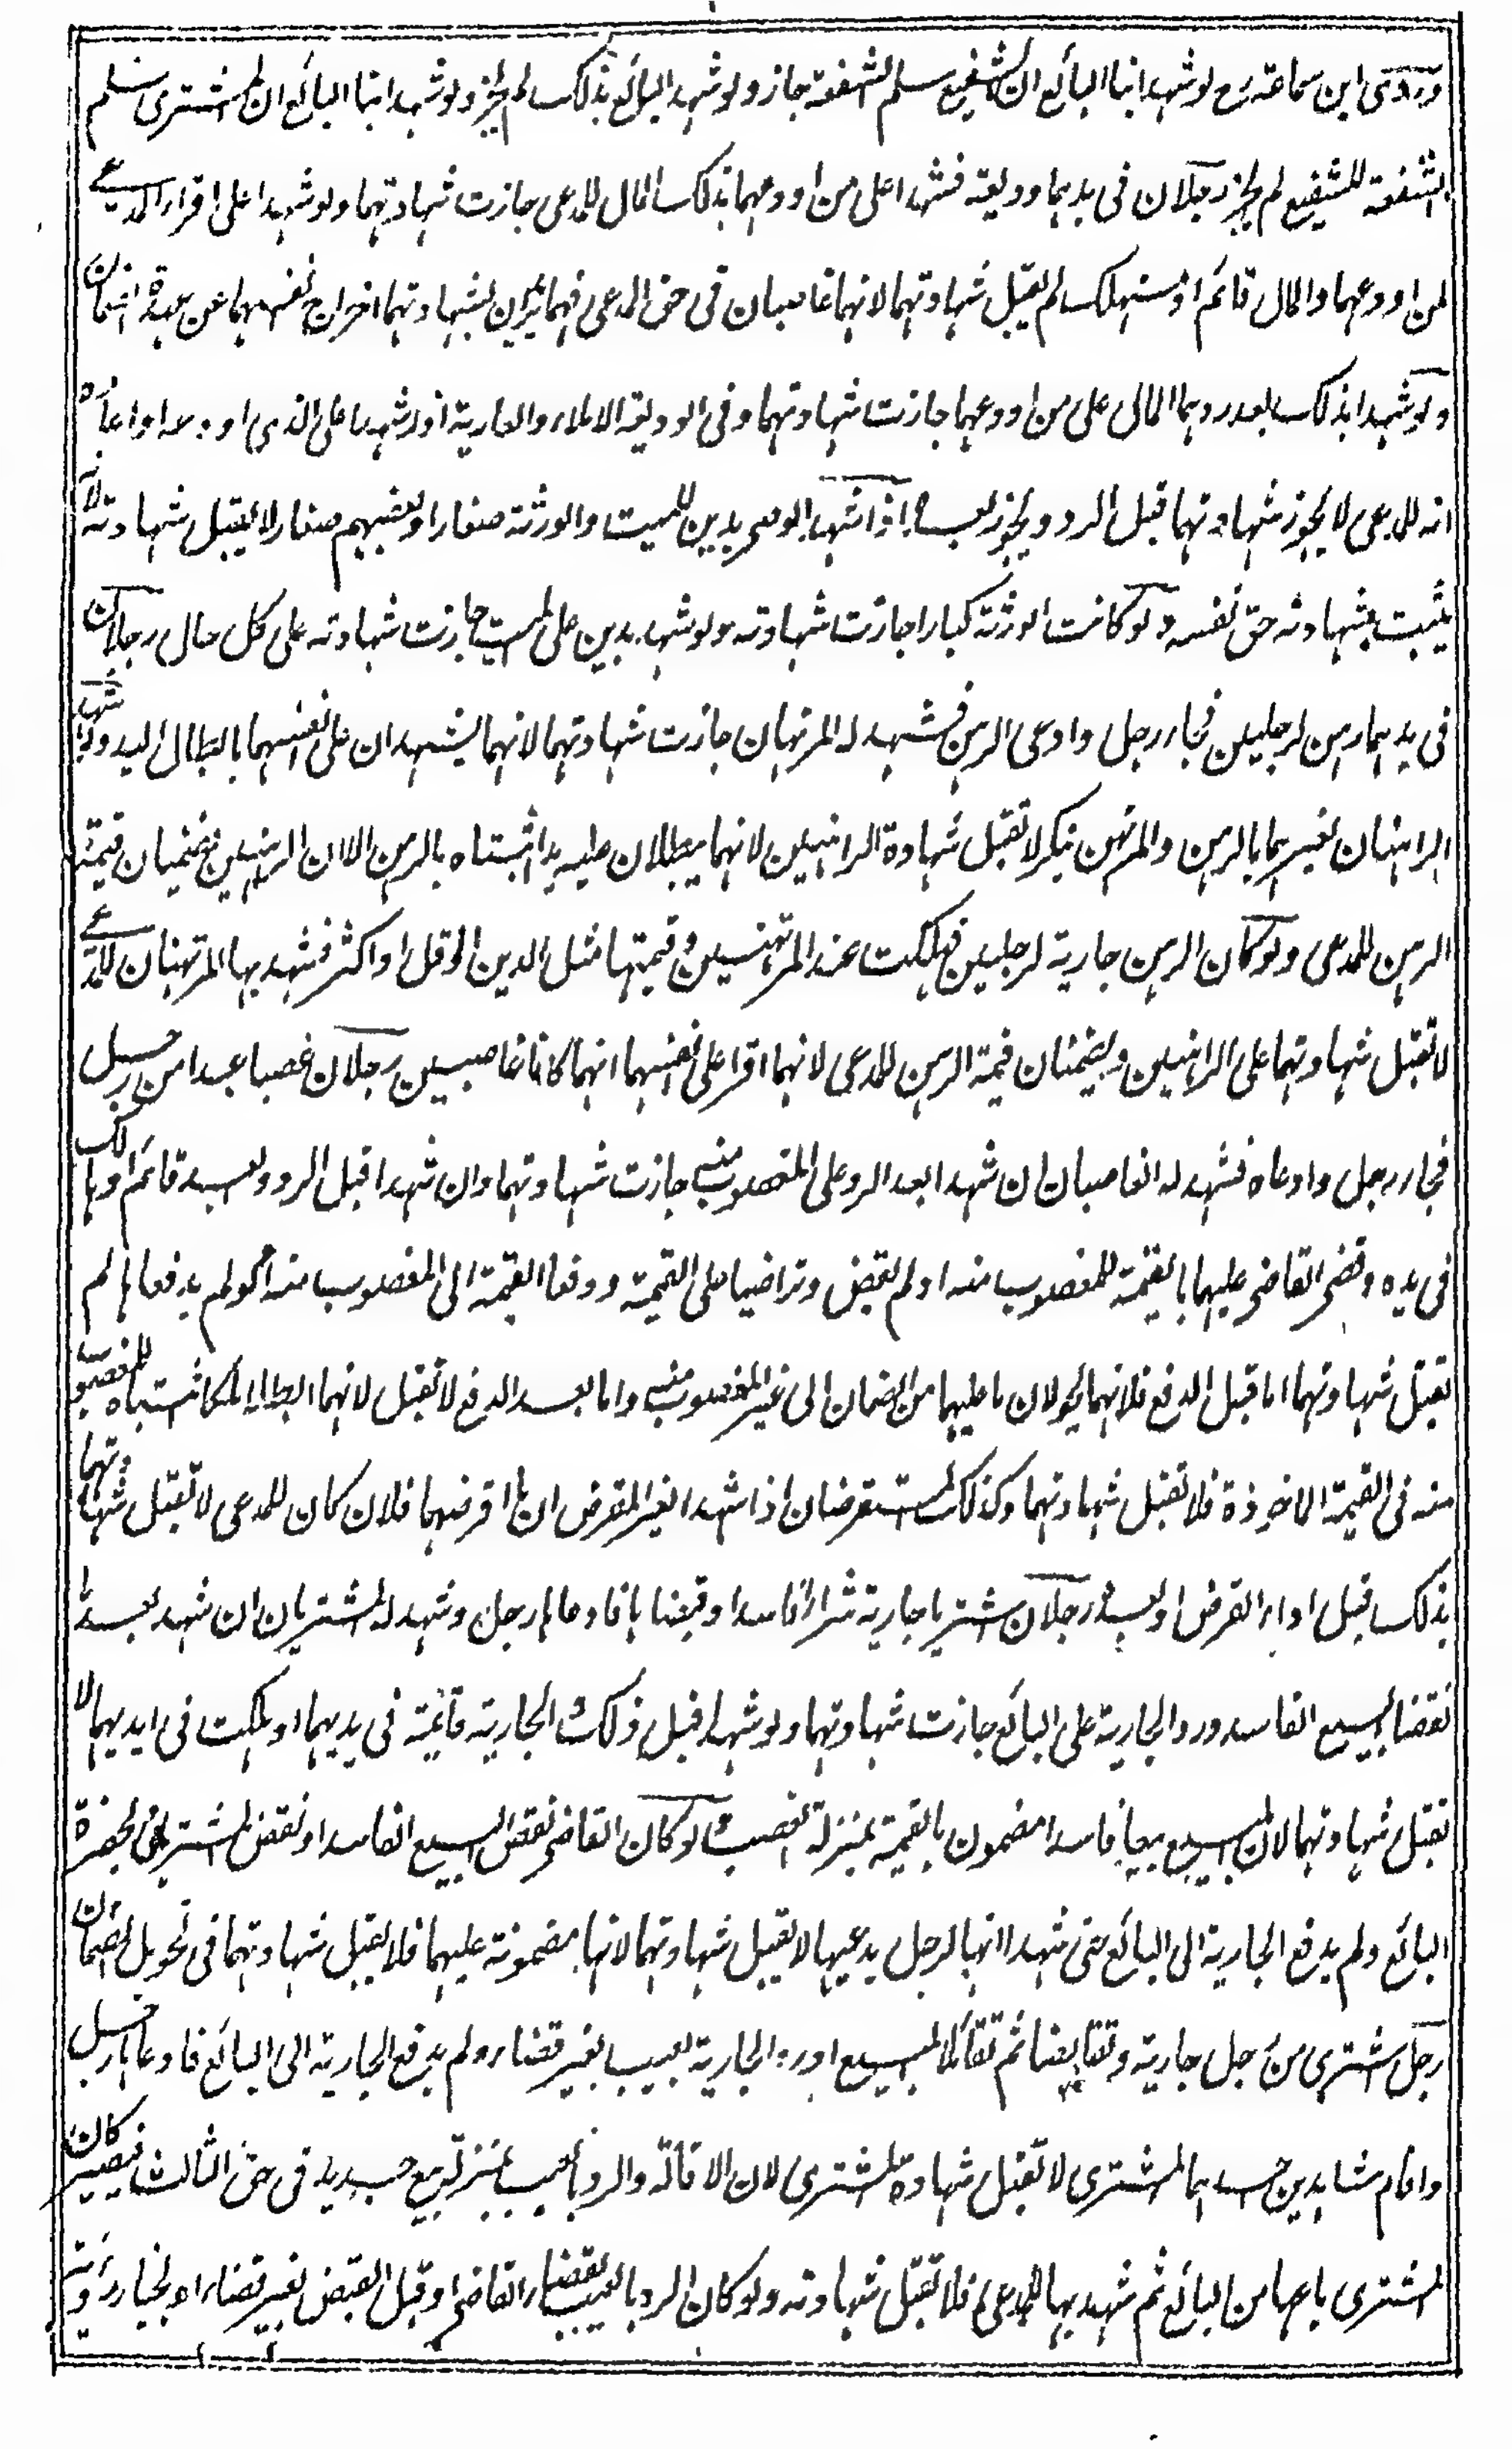 وروى ابن سماعة رح لو شهد ابنا البائع ان الشفيع سلم الشفعة جاز ولو شهد البائع بذلك لم يجز ولو شهد ابنا البائع ان المشترى سلم
الشفعة للشفيع لم يجز رجلان فى يديهما وديعة فشهدا على من اودعهما بذلك المال للمدعى جازت شهادتهما ولو شهدا على اقرار المدعى
لمن اودعهما والمال قائم او مستهلك لم تقبل شهادتهما لانهما غاصبان فى حق المدعى فهما يريدان بشهادتهما اخراج نفسهما عن عهدة الضمان
ولو شهدا بذلك بعد ردهما المال على من اودعهما جازت شهادتهما وفى الوديعة الاملاء والعارية اذا شهدا على الذى اودعه او اعاره
انه للمدعى لا يجوز شهادتهما قبل الرد ويجوز بعده اذا شهد الوصى بدين للميت والورثة صغار او بعضهم صغار لا يقبل شهادته لانه
يثبت بشهادته حق نفسه ولو كانت الورثة كبارا جازت شهادته ولو شهد بدين على الميت جازت شهادته على كل حال رجلان
فى يديهما رهن لرجلين فجاء رجل وادعى الرهن فشهد له المرتهنان جازت شهادتهما لانهما يشهدان على نفسهما بابطال اليد ولو شهد
الراهنان لغيرهما بالرهن والمرتهن ينكر لا تقبل شهادة الراهنين لانهما يبطلان عليه يدا اثبتاه بالرهن الا ان الراهنين يضمنان قيمة
الرهن للمدعى ولو كان الرهن جارية لرجلين فهلكت عند المرتهنين وقيمتها مثل الدين او اقل او اكثر فشهد بها المرتهنان للمدعى
لا تقبل شهادتهما على الراهنين ويضمنان قيمة الرهن للمدعى لانهما اقرا على نفسهما انهما كانا غاصبين رجلان غصبا عبدا من رجل
فجاء رجل وادعاه فشهد له الغاصبان ان شهدا بعد الرد على المغصوب منه جازت شهادتهما وان شهدا قبل الرد والعبد قائم او هالك
فى يده وقضى القاضى عليهما بالقيمة للمغصوب منه او لم يقض وتراضيا على القيمة ودفعا القيمة الى المغصوب منه او لم يدفعاها لم
تقبل شهادتهما اما قبل الدفع فلانهما يحولان ما عليهما من الضمان الى غير المغصوب منه واما بعد الدفع لا تقبل لانهما ابطلا ملكا اثبتاه للمغصوب
منه فى القيمة الماخوذة فلا تقبل شهادتهما وكذلك المستقرضان اذا شهدا لغير المقرض ان ما اقرضهما فلان كان للمدعى لا تقبل شهادتهما
بذلك قبل اداء القرض او بعده رجلان اشتريا جارية شراء فاسدا وقبضاها فادعاها رجل وشهد له المشتريان ان شهدا بعد ما
نقضا البيع الفاسد وردا الجارية على البائع جازت شهادتهما ولو شهدا قبل ذلك والجارية قائمة فى يديهما او هلكت فى ايديهما لا
تقبل شهادتهما لان المبيع بيعا فاسدا مضمون بالقيمة بمنزلة الغصب ولو كان القاضى نقض البيع الفاسد او نقض المشتريان بحضرة
البائع ولم يدفع الجارية الى البائع حتى شهدا انها لرجل يدعيها لا يقبل شهادتهما لانها مضمونة عليهما فلا يقبل شهادتهما فى تحويل الضمان
رجل اشترى من رجل جارية وتقابضا ثم تقائلا البيع او رد الجارية بعيب بغير قضاء ولم يدفع الجارية الى البائع فادعاها رجل
واقام شاهدين احدهما المشترى لا تقبل شهادة المشترى لان الاقالة والرد بالعيب بمنزلة بيع جديد فى حق الثالث فيصير كان
المشترى باعها من البائع ثم شهد بها للمدعى فلا تقبل شهادته ولو كان الرد بالعيب بقضاء القاضى او قبل القبض بغير قضاء او بخيار رؤية